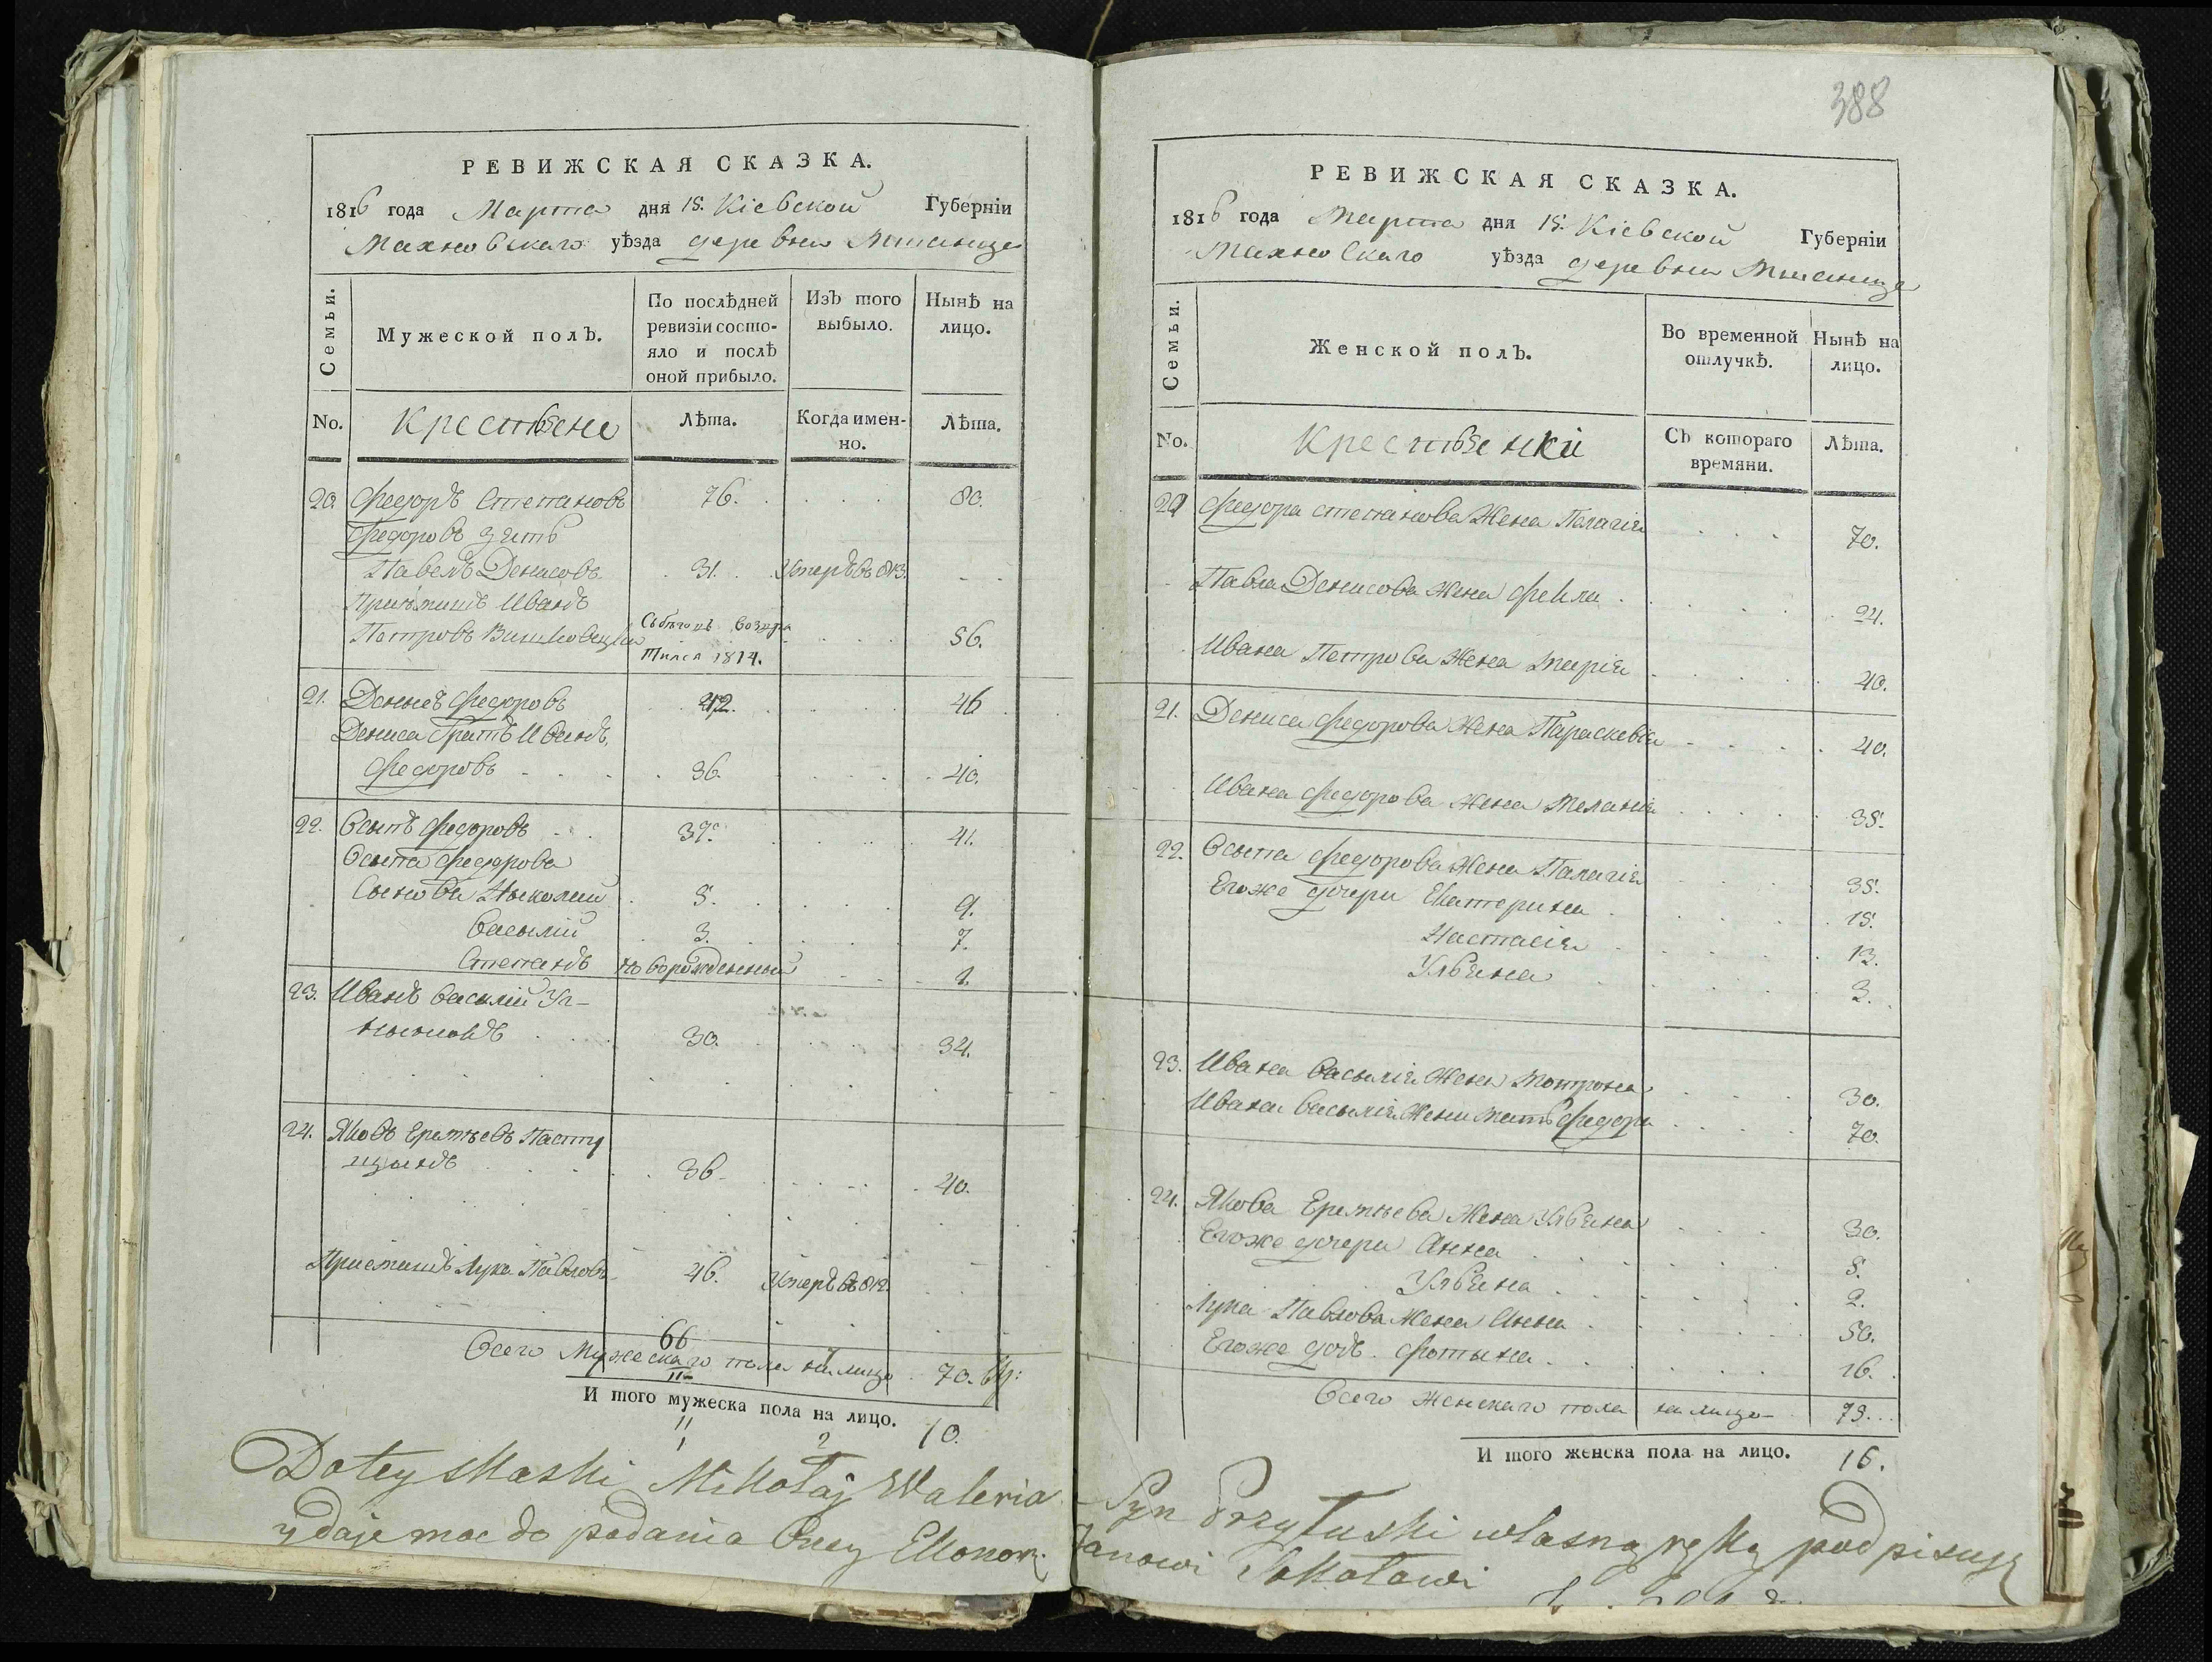 РЕВИЖСКАЯ СКАЗКА.
1816 года Марта дня 15. Кіевской Губерніи
Махновскаго уѣзда деревни Мшанца
Семьи.
Мужеской полъ.
По послѣдней ревизіи состояло и послѣ оной прибыло.
Изъ того выбыло.
Нынѣ на лицо.
No.
Крестьяне
Лѣта.
Когда именно.
Лѣта.
20. Федоръ Степановъ 76. 80.
Федоровъ зять
Павелъ Денисовъ 31. Умеръ въ 813.
Приймишъ Иванъ
Петровъ Съ бѣговъ возвра
тился 1814. 56.
21. Денысъ Федоровъ 42. 46
Дениса братъ Иванъ
Федоровъ 36. 40.
22. Осыпъ Федоровъ 37. 41.
Осыпа Федорова
Сынови Ныколай 5. 9.
Васылій 3. 7.
Степанъ новорожденный 1.
23. Иванъ Васылій
30. 34.
24. Яковъ Еремѣевъ
36. 40.
Приемишъ Лука Павловъ 46. Умеръ въ 812.
66
Всего Мужескаго пола на лицо 70.
11
И того мужеска пола на лицо. 10.
11
1 2
388
РЕВИЖСКАЯ СКАЗКА.
1816 года Марта дня 15. Кіевской Губерніи
Махновскаго уѣзда деревни Мшанца
Семьи.
Женской полъ.
Во временной отлучкѣ.
Нынѣ на лицо.
No.
Крестьянки
Съ котораго времяни.
Лѣта.
20 Федора Степанова Жена Палагія 70.
Павла Денисова Жена Фекла 24.
Ивана Петрова Жена Марія 40.
21. Дениса Федорова Жена Параскевія 40.
Ивана Федорова Жена Меланія 35.
22. Осыпа Федорова Жена Палагія 35.
Егоже дочери Екатерина 15.
Настасія 13.
Ульяна 3.
23. Ивана Васылія Жена Мотрона 30.
Ивана Васылія Жени Мать Федора 70.
24. Якова Еремѣева Жена Ульяна 30.
Егоже дочери Анна 5.
Ульяна 2.
Лука Павлова Жена Анна 50.
Егоже дочь Фотына 16.
Всего Женскаго пола на лицо 75.
И того женска пола на лицо. 16.
Do tey skaski Mikołaj Waleria Syn Przyłuski własną ręką podpisuję
y daje moc do podania Oney Ekonom. Janowi Sokołowi